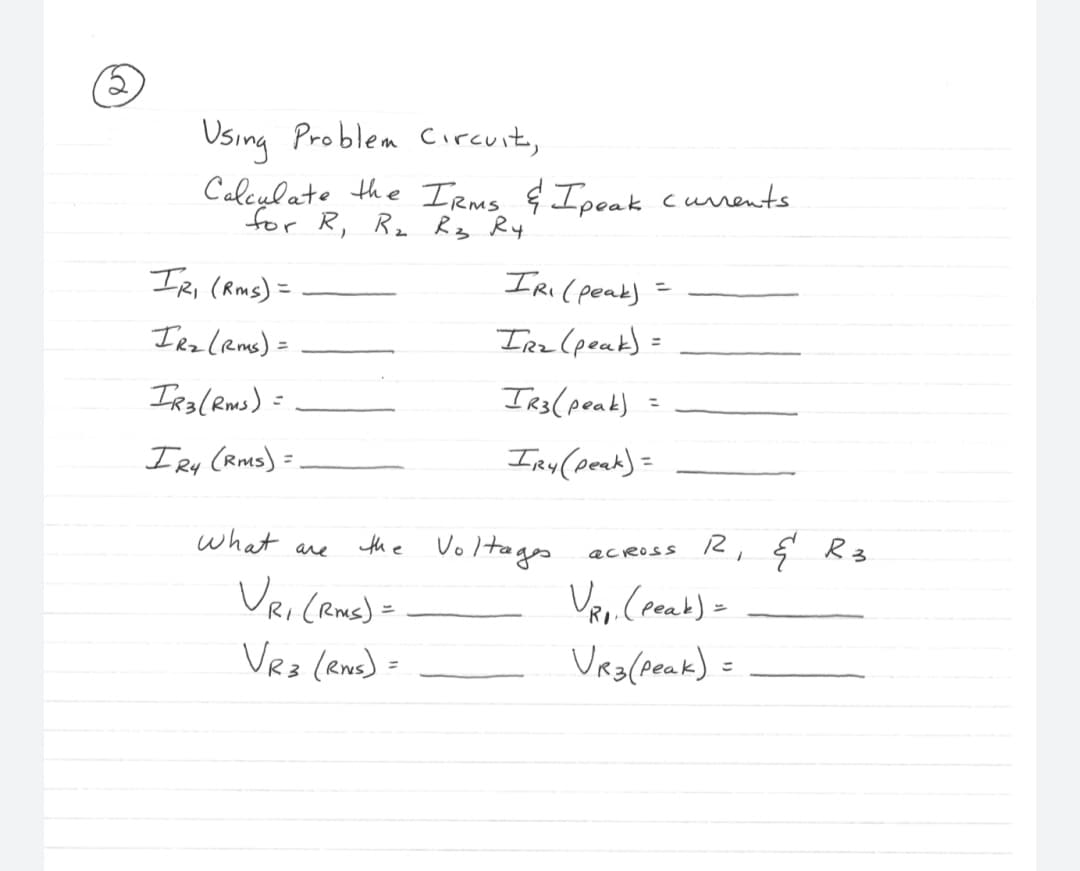 ②
Using Problem Circuit,
Calculate the IRMS & Ipeak currents
for R1 R2 R3 R4
IR1 (Rms) = ______ IR1 (peak) = ______
IR2 (Rms) = ______ IR2 (peak) = ______
IR3 (Rms) = ______ IR3 (peak) = ______
IR4 (Rms) = ______ IR4 (peak) = ______
What are the Voltages across R1 & R3
VR1 (Rms) = ______ VR1. (peak) = ______
VR3 (Rms) = ______ VR3 (peak) = ______